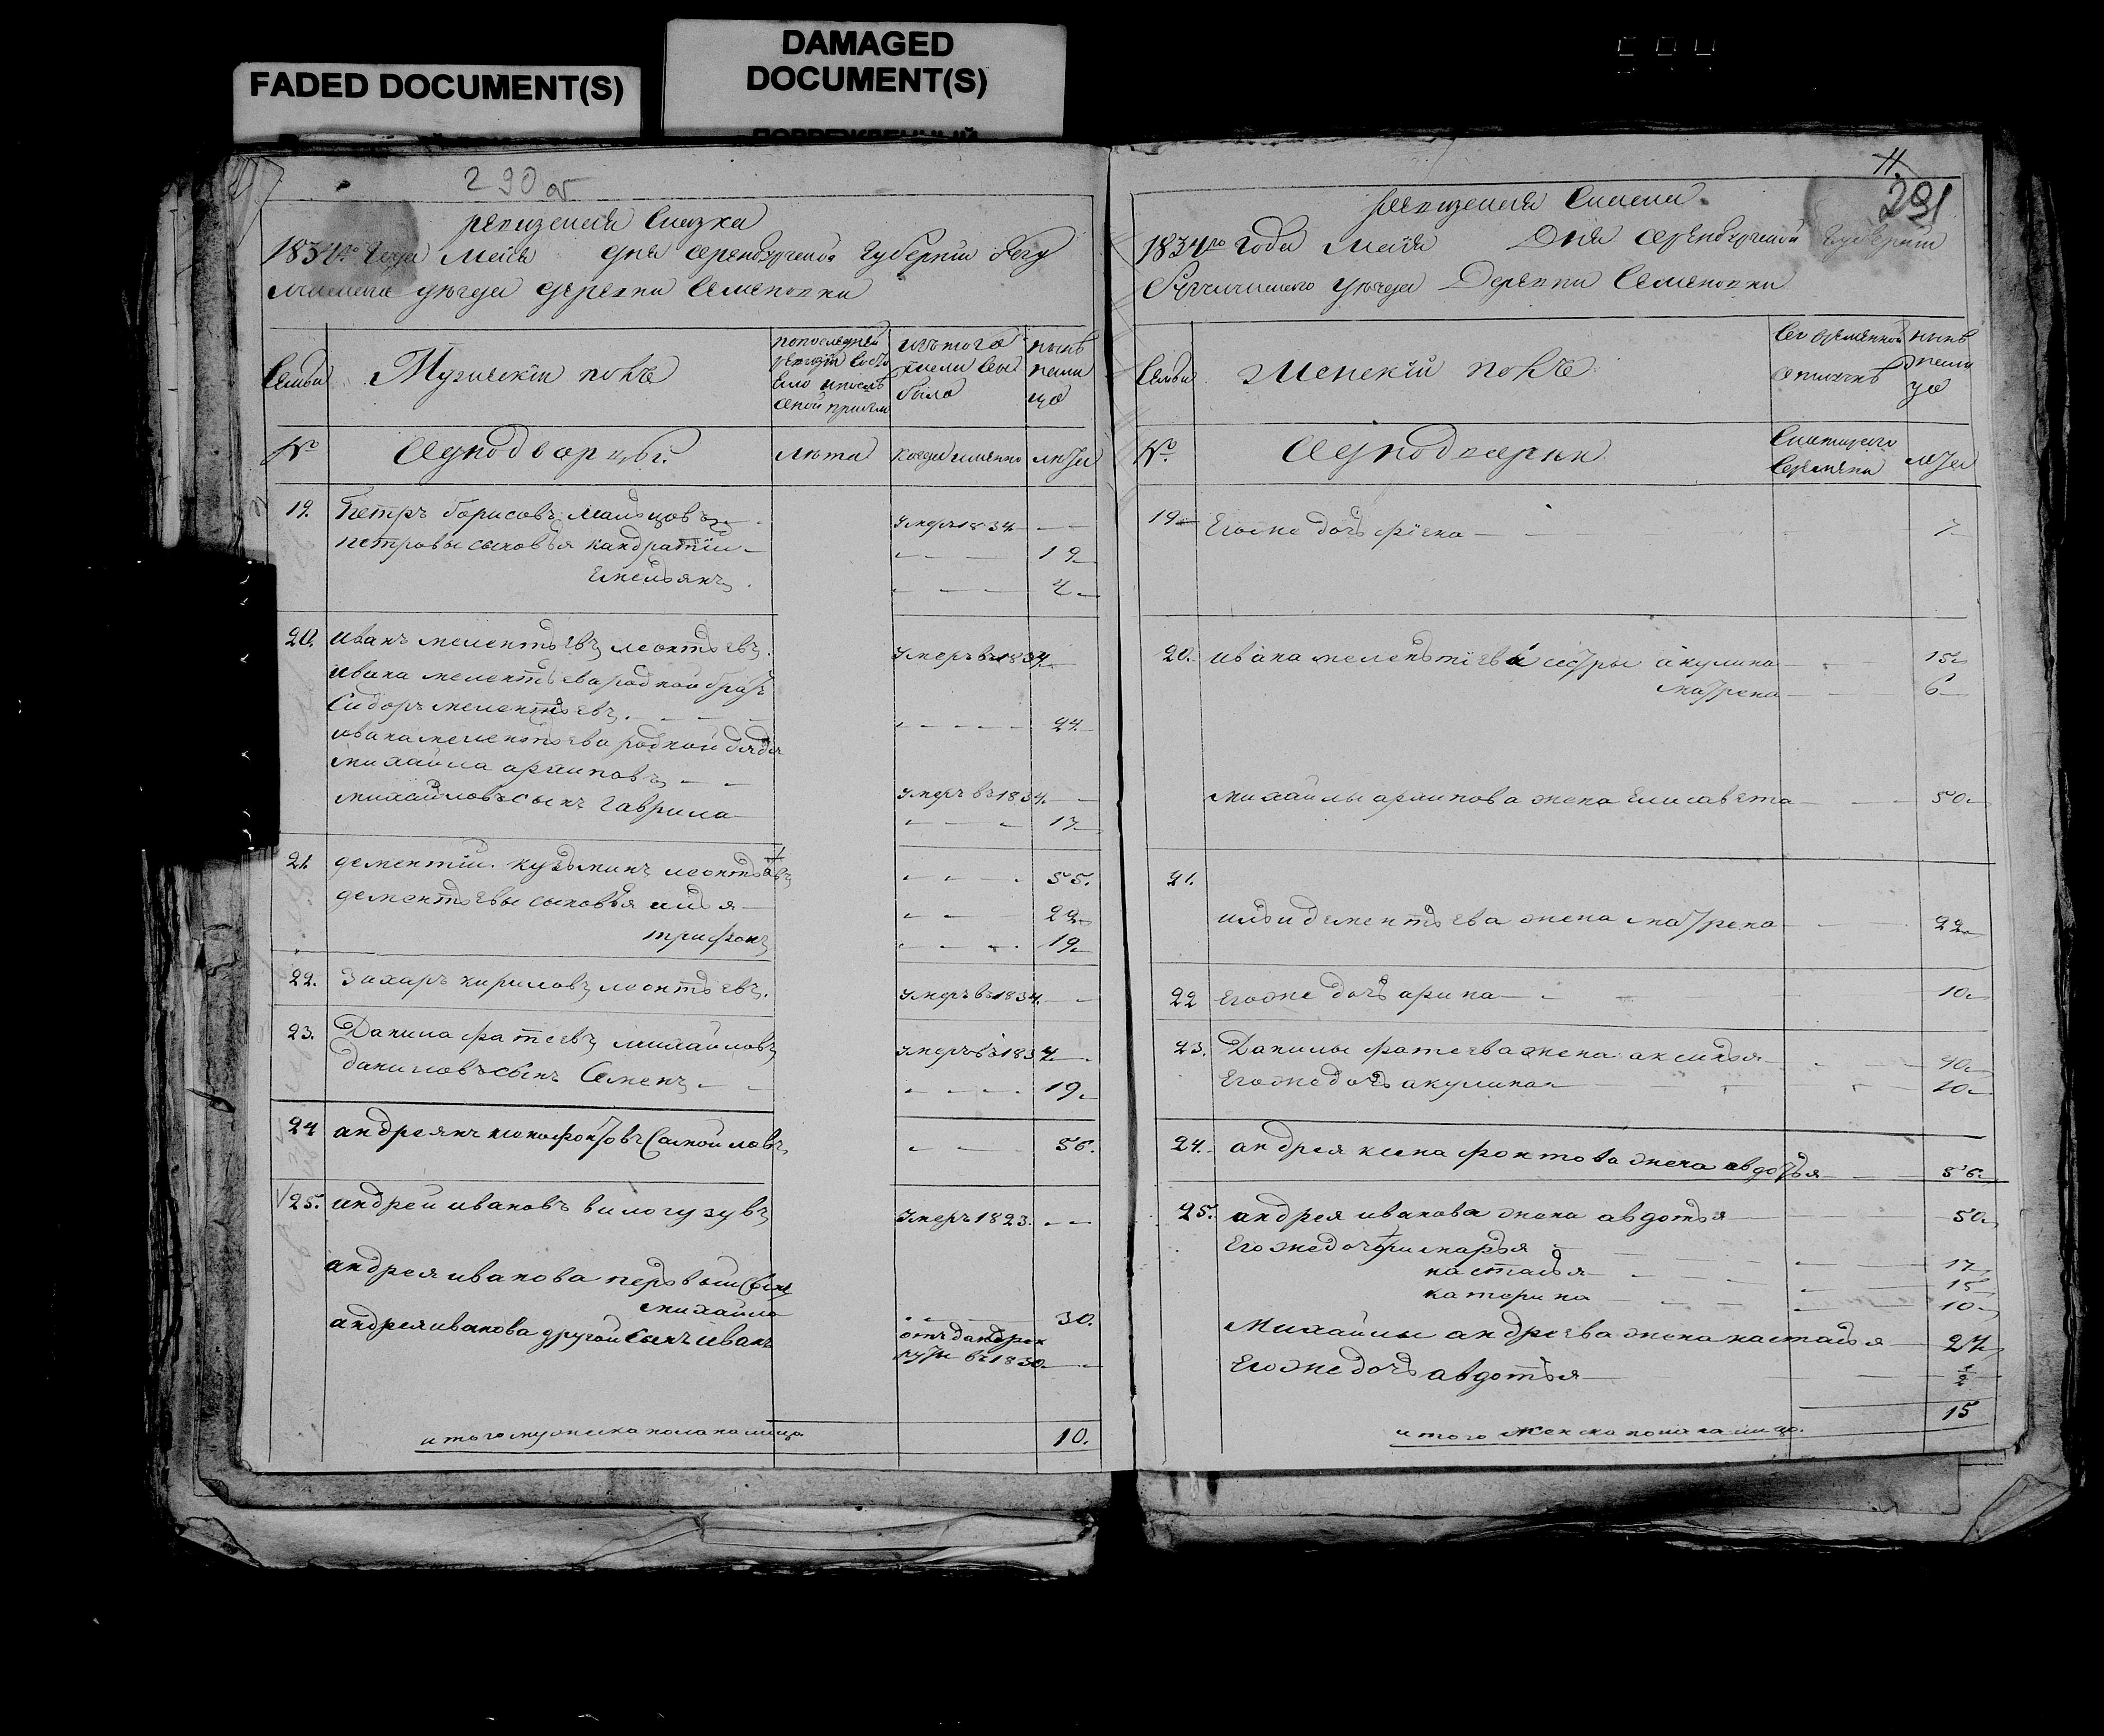 FADED DOCUMENT(S)
DAMAGED
DOCUMENT(S)
290 об
ревизская Сказка
1834го Года Маія дня оренбургской Губерніи бугу
уезда деревни Семеновки
Семьи
Мужескій полъ
попоследней
ревизіи состо
изътого
числа
было
нынѣ
нали
цо
№
Однодворцы.
лѣта
когда именно
лѣта
19. Петръ борисовъ умеръ 1834
петровы сыновья кандратій 19
емельянъ 4
20. иванъ мелентьевъ леонтьевъ умеръ въ 1834
ивана мелентьева родной братъ
Сидоръ мелентьевъ 24
ивана мелентьева родной дядя
михайла архиповъ умеръ въ 1834
михайловъ сынъ гаврила 17
21. дементій кузьминъ леонтьевъ 55.
дементьевы сыновья илья 22
трифонъ 19
22. захаръ кириловъ леонтьевъ. умеръ въ 1834
23. Данила фатеевъ михайловъ умеръ въ 1834
даниловъ сынъ Семенъ 19
24 андреянъ 56.
25. андрей ивановъ вилогузувъ умеръ 1823.
андрея иванова первый сынъ
михайла 30.
андрея иванова другой сынъ иванъ отъдан
въ 1830
итого мужеска пола налицо 10.
11.
291
ревизская Сказка
1834го Года Маія Дня оренбургской Губерніи
уезда Деревни Семеновки
Семьи
Женскій полъ
нынѣ
нали
цо
№
Однодворки
лѣта
19 Егоже дочь 7
20. ивана мелентіева сестры акулина 15
матрена 6
михайлы архипова жена Елисавета 50
21.
ильи дементьева жена матрена 22
22 егоже дочь арина 10
23. Данилы фатеева жена аксинья 40
Егоже дочь акулина 10
24. андрея ксенафонтова жена авдотья 56
25. андрея иванова жена авдотья 50
Егоже дочери марья 17
настасья 15
катерина 10
Михайлы андреева жена настасья 27
Егоже дочь авдотья 1/2
итого женска пола налицо. 15